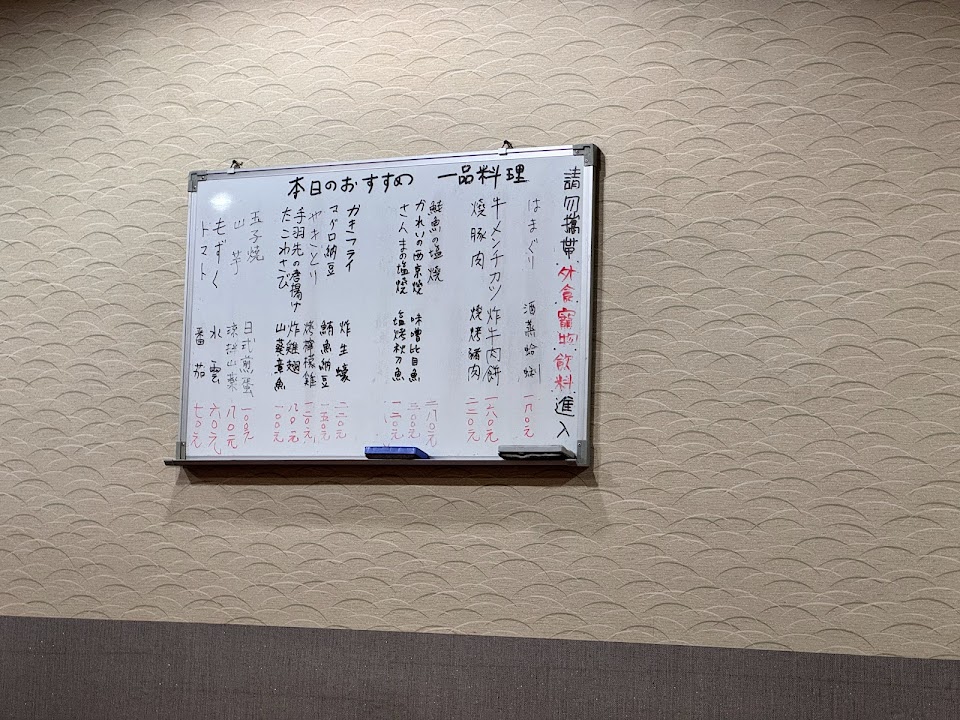 本日のおすすめ 一品料理
請勿攜帶外食寵物飲料進入
はまぐり 酒蒸蛤蜊 一八〇元
牛メンチカツ 炸牛肉餅 一六〇元
燒豚肉 燒烤豬肉 二二〇元
鮭魚の塩焼 二八〇元
かれいの西京焼 味噌比目魚 三〇〇元
さんまの塩焼 塩烤秋刀魚 一二〇元
かきフライ 炸生蠔 二二〇元
マグロ納豆 鮪魚納豆 一五〇元
やきとり 烤檸檬雞 二二〇元
手羽先の唐揚げ 炸雞翅 八〇元
たこわさび 山葵章魚 一〇〇元
玉子焼 日式煎蛋 一〇〇元
山芋 山藥 八〇元
もずく 水雲 六〇元
トマト 番茄 七〇元